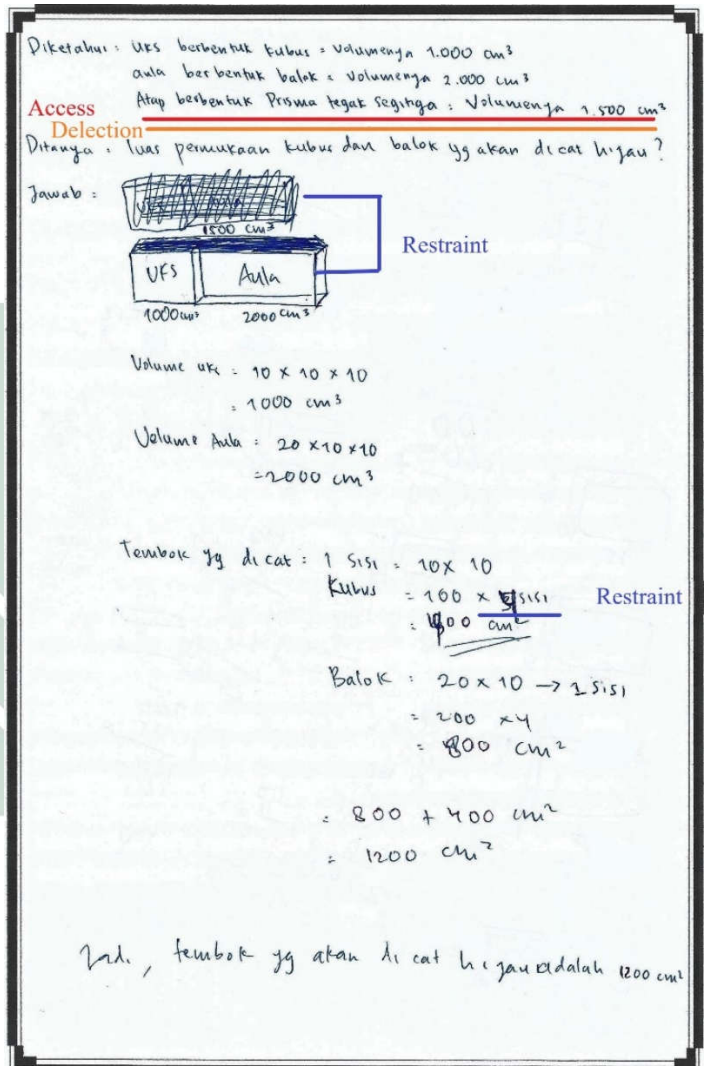 Diketahui : UKS berbentuk kubus = Volumenya 1.000 cm³
aula berbentuk balok = Volumenya 2.000 cm³
Access
Atap berbentuk Prisma tegak segitiga : Volumenya 1.500 cm³
Delection
Ditanya : luas permukaan kubus dan balok yg akan dicat hijau?
Jawab :
1500 cm³
Restraint
UKS Aula
1000 cm³ 2000 cm³
Volume uks = 10 x 10 x 10
= 1000 cm³
Volume Aula = 20 x 10 x 10
= 2000 cm³
Tembok yg dicat : 1 sisi = 10 x 10
Kubus = 100 x sisi Restraint
= 400 cm²
Balok : 20 x 10 → 1 sisi
= 200 x 4
= 800 cm²
= 800 + 400 cm²
= 1200 cm²
Jadi, tembok yg akan di cat hijau adalah 1200 cm²